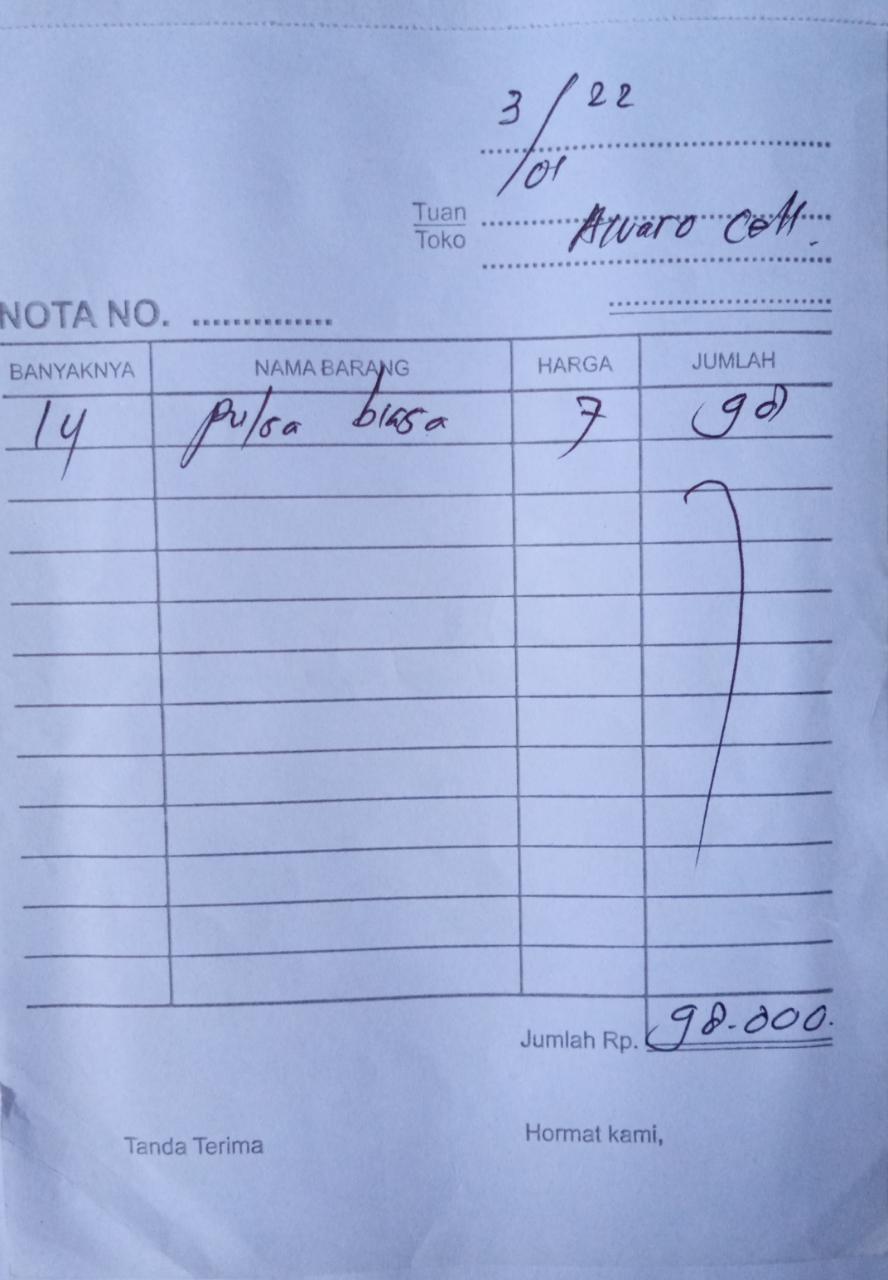 3/01 22
Tuan
Toko
Alvaro Cell.
NOTA NO. ..............
BANYAKNYA NAMA BARANG HARGA JUMLAH
14 pulsa biasa 7 98
Jumlah Rp. 98.000.
Tanda Terima Hormat kami,